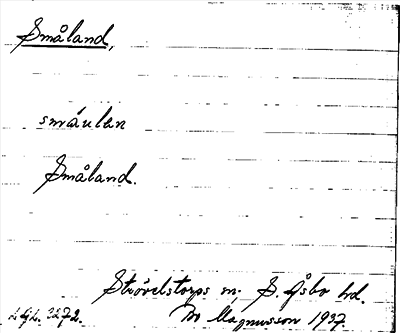 Småland,
småulan
Småland.
Strövelstorps m; S. Åsbo hd.
Magnusson 1937